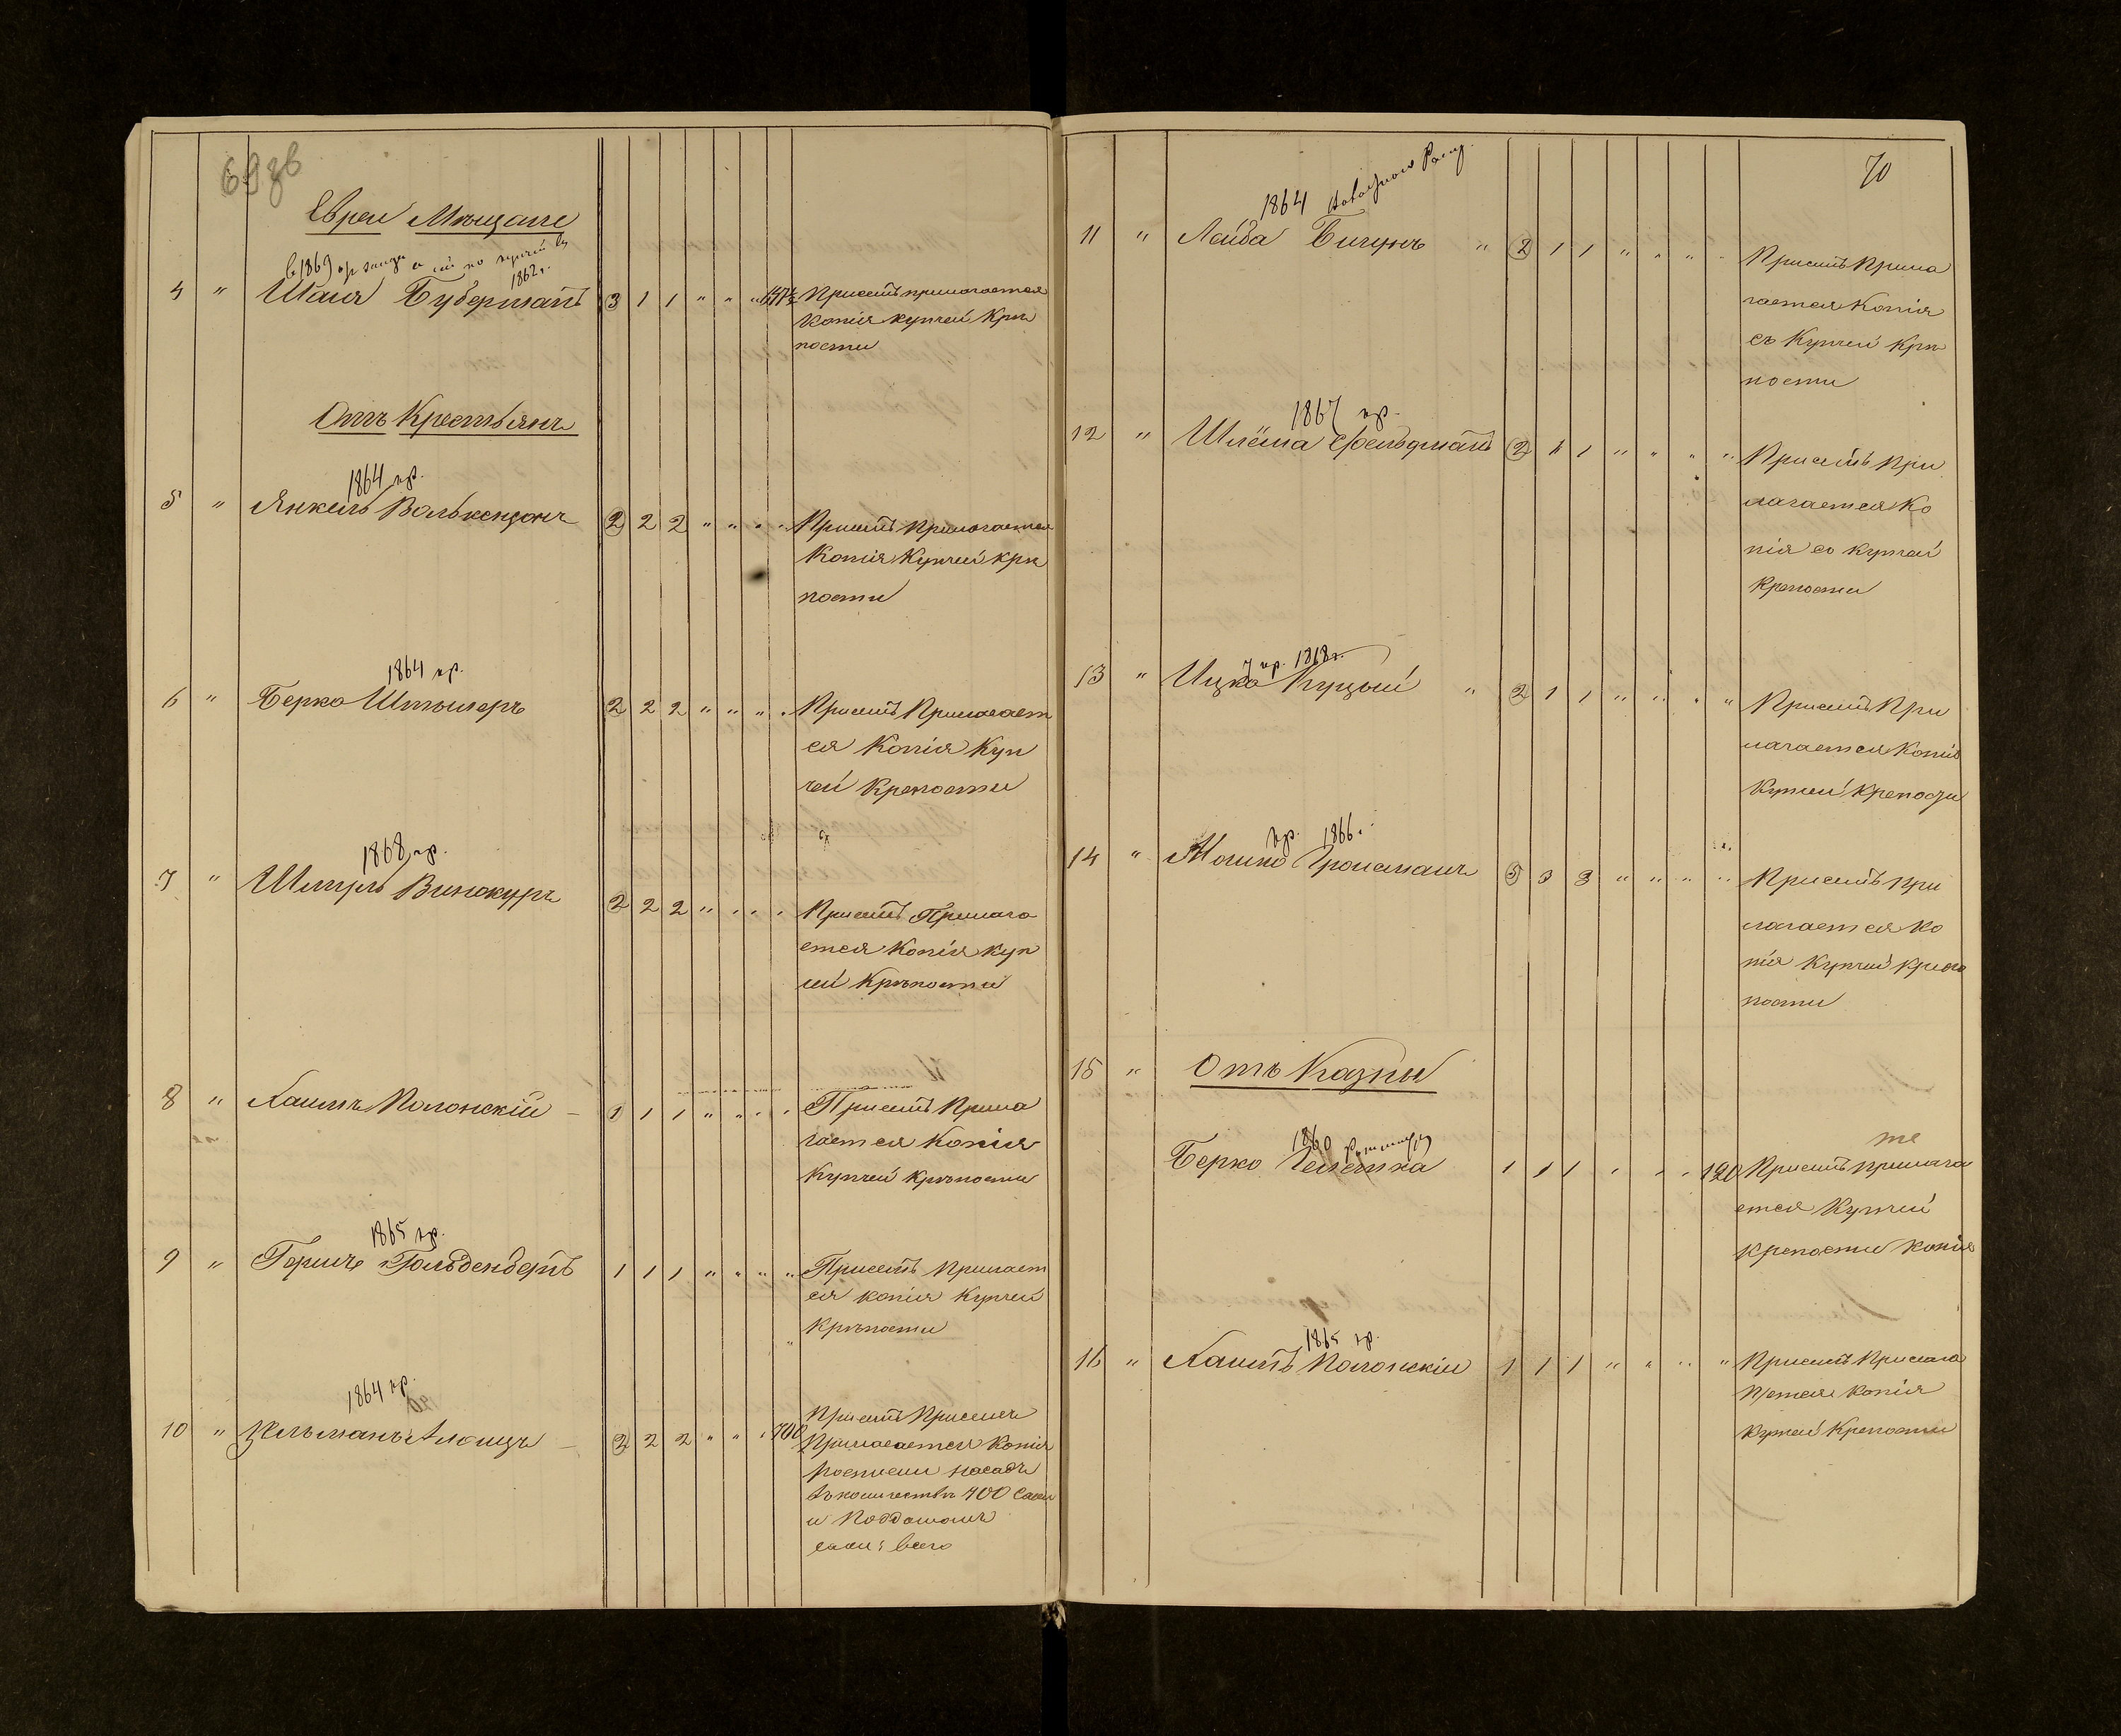 69 зв
Евреи Мѣщане
1862 г.
4 " Шая Губерманъ 3 1 1 " " " Присемъ прилогается
копія купчей Крѣ
пости
Отъ Крестьянъ
1864 пр.
5 " Янкель 2 2 2 " " " " Присемъ Прилогается
Копія Купчей крѣ
пости
1864 пр.
6 " Берко 2 2 2 " " " " Присемъ Прилагает
ся Копія Куп
чей Крепости
1868 пр.
7 " Шмуль Винокуръ 2 2 2 " " " " Присемъ Прилага
ется Копія куп
чей Крѣпости
8 " Хаимъ Полонскій 1 1 1 " " " " Присемъ Прила
гается Копія
Купчей крѣпости
1865 пр.
9 " Гершъ Гольденбергъ 1 1 1 " " " " Присемъ Прилает
ся копія Купчей
Крѣпости
1864 пр.
10 " Зельманъ 2 2 2 " " " 700 Присемъ
Прилагается Копія
въ количествѣ 700 Сажен
и
саж: всего
70
1864
11 " Лейба Бигунъ " 2 1 1 " " " " Присемъ Прила
гается Копія
съ Купчей Крѣ
пости
1867 пр.
12 " Шлёма Фельдманъ 2 1 1 " " " " Присемъ При
лагается Ко
пія со купчей
Крепости
13 " Ицко Куцый " 2 1 1 " " " " Присемъ При
лагается Копія
Купчей Крепости
пр. 1866.
14 " Мошко Гройсманъ 3 3 3 " " " " Присемъ при
лагается Ко
пія Купчей
пости
15 " Отъ Казны
1860
Берко 1 1 1 " " " 120 Присемъ прилага
ется Купчей
крепости копія
1865 пр.
16 " Хаимъ Полонскій 1 1 1 " " " " Присемъ Прилага
ется Копія
Купчей Крепости